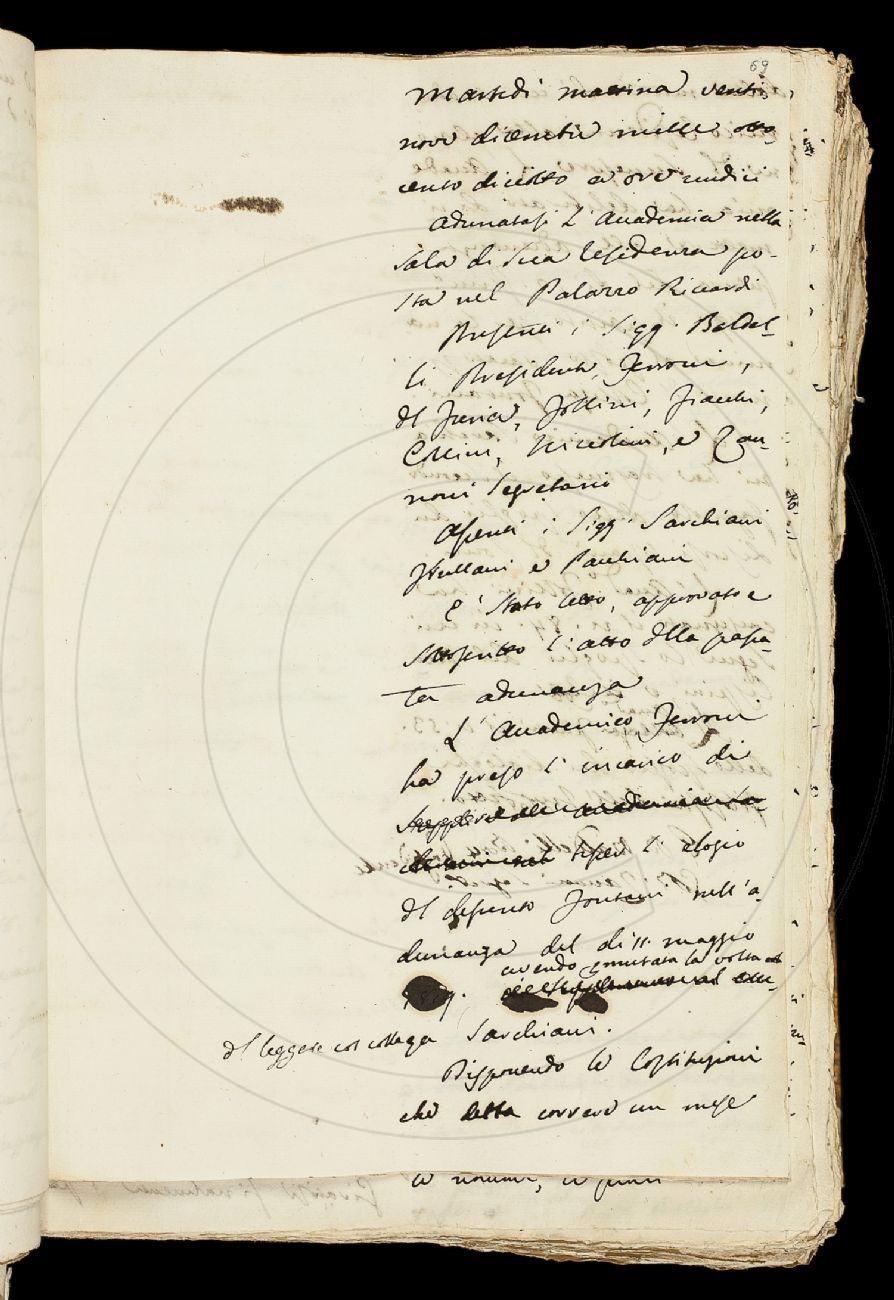 69
Martedì mattina venti
nove dicembre mille otto-
cento diciotto a ore undici
Adunatasi l'Accademia nella
Sala di Sua residenza po-
sta nel Palazzo Riccardi
Presenti i Sigg. Baldel-
li Presidente, Ferroni,
del Furia, Follini, Fiacchi,
Collini, Niccolini, e Zan-
noni Segretario
Assenti i Sigg. Sarchiani
Frullani e Pacchiani
È stato letto, approvato e
sottoscritto l'atto della passa-
ta adunanza
L'Accademico Ferroni
ha preso l'incarico di
tesser l'elogio
del defunto Fontani nell'a-
dunanza del dì 11. maggio
avendo permutata la volta
del leggere col collega Sarchiani.
Disponendo le Costituzioni
che detta correre un mese
le nomine, e